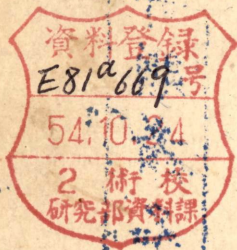 資料登録
E81a669号
54.10.24
2術校
研究部資料課